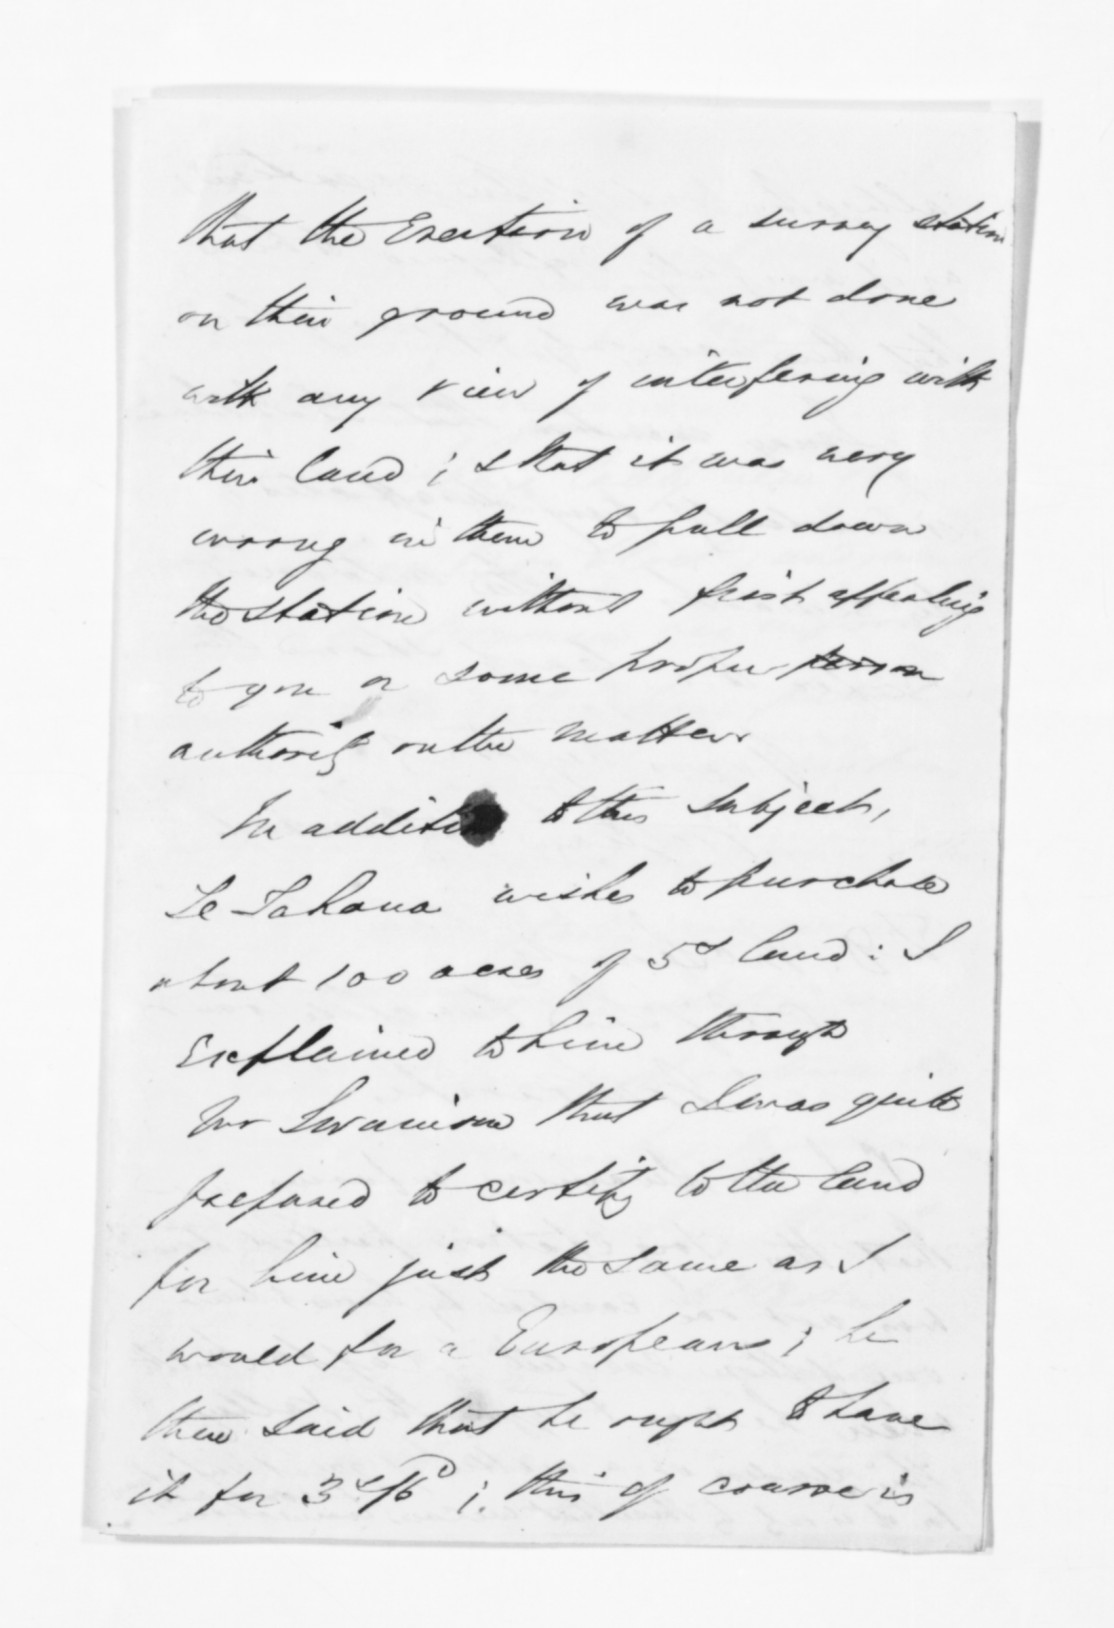 that the Erection of a survey station
on their ground was not done
with any view of interfering with
their land; & that it was very
wrong in them to pull down
the station without first appealing
to you or some proper person
authority on the matter.
In addition to this subject,
Te Tahana wishes to purchase
about 100 acres of 5s land: I
explained to him through
Mr Swainson that I was quite
prepared to certify to the land
for him just the same as I
would for a European; he
then said that he ought to have
it for 3s/6d; this of course is